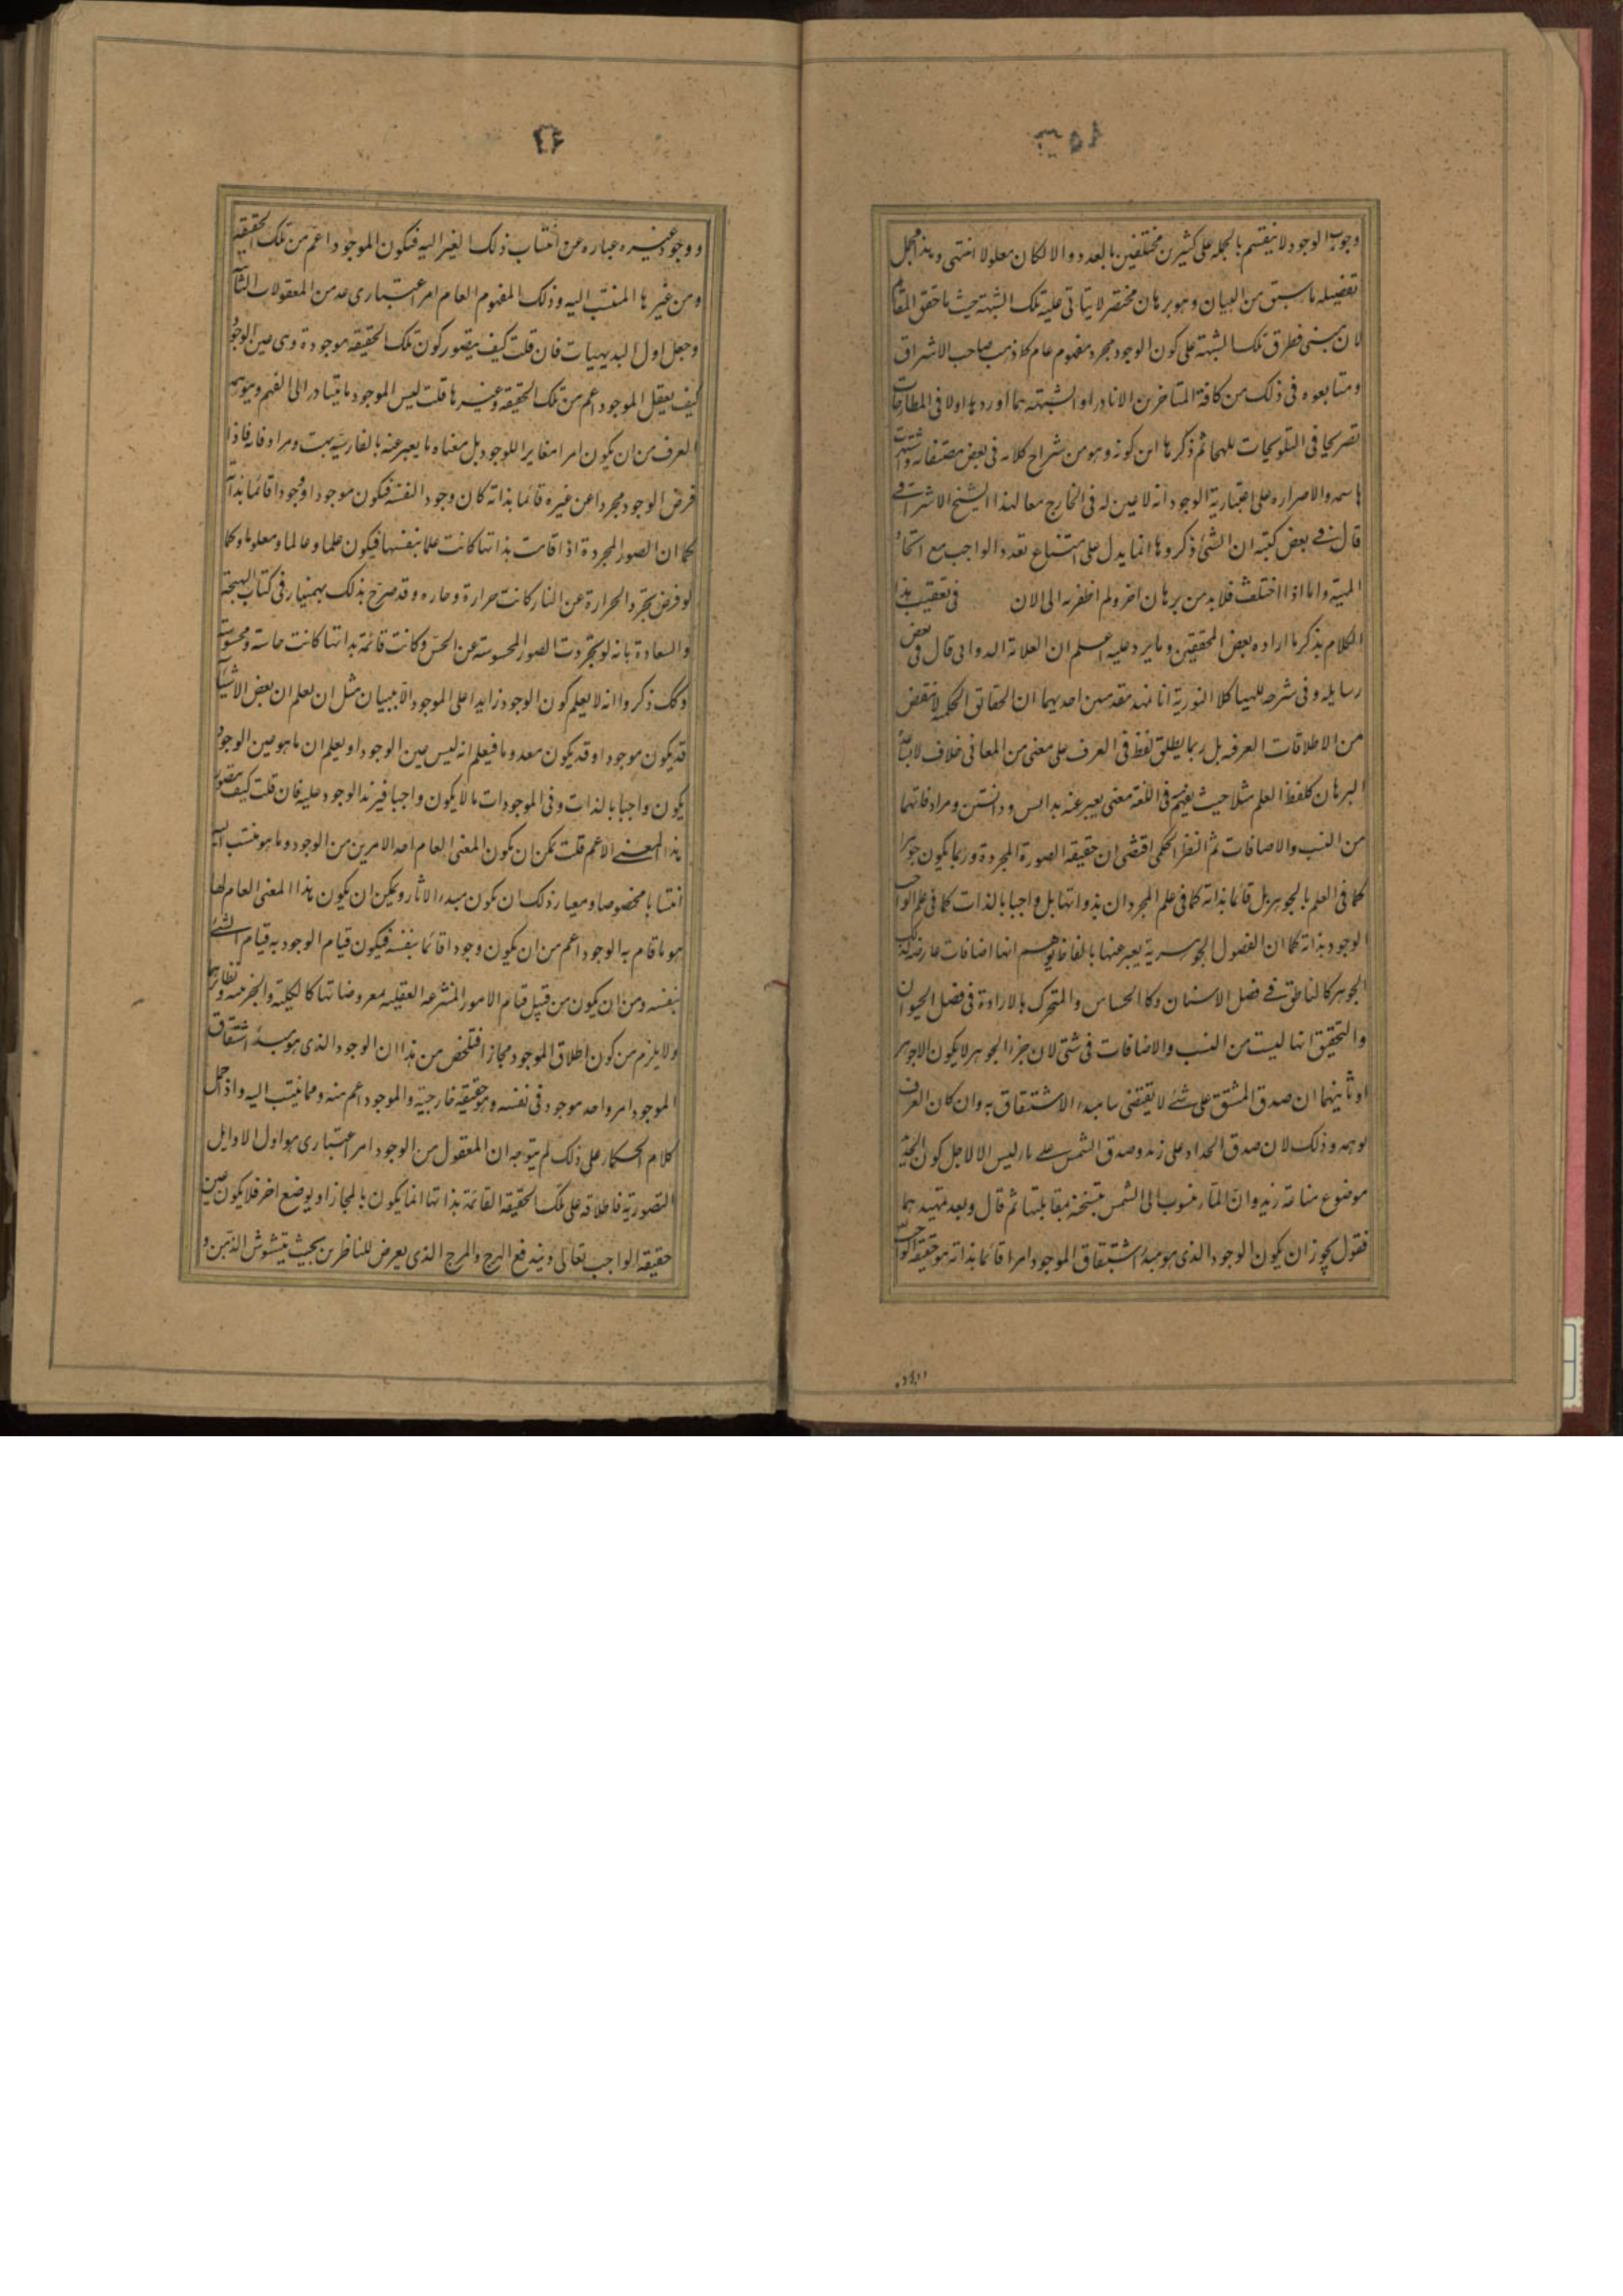 ٣٥٨
وجوب الوجود لا ينقسم بالجمله على كثيرين مختلفين بالعدد والا لكان معلولا انتهى وهذا مجمل
تفصيله ما سبق من البيان وهو برهان مختصر لا يتاتى عليه تلك الشبهة حيث ما حقق المقام
لان مبنى تطرق تلك الشبهة على كون الوجود مجرد مفهوم عام كما ذهب صاحب الاشراق
ومتابعوه فى ذلك من كافة المتاخرين الا نادرا والشبهة مما اوردها اولا فى المطارحات
تصريحا فى التلويحات تلميحا ثم ذكرها ابن كمونه وهو من شراح كلامه فى بعض مصنفاته واشتهرت
باسمه ولاصراره على اعتبارية الوجود انه لا عين له فى الخارج معا لهذا الشيخ الاشراقى
قال فى بعض كتبه ان الشئ ذكروها انما يدل على امتناع تعدد الواجب مع اتحاد
المهية واما اذا اختلف فلا بد من برهان اخر ولم اظفر به الى الان فى تعقيب هذا
الكلام بذكر ما اراده بعض المحققين وما يرد عليه اعلم ان العلامة الدوانى قال فى بعض
رسايله وفى شرحه للهياكل النورية انا نمهد مقدمتين احديهما ان الحقائق الحكمية لا تقتنص
من الاطلاقات العرفيه بل ربما يطلق لفظ فى العرف على معنى من المعانى خلاف ما يساعده
البرهان كلفظ العلم مثلا حيث يفهم فى اللغة معنى يعبر عنه بدانش ودانستن ومرادفاتهما
من النسب والاضافات ثم النظر الحكمى اقتضى ان حقيقه الصورة المجردة وربما يكون جوهرا
كما فى العلم بالجوهر بل قائما بذاته كما فى علم المجردات بذواتها بل واجبا بالذات كما فى علم الواجب
الوجود بذاته كما ان الفصول الجوهرية يعبر عنها بالفاظ يوهم انها اضافات عارضة لتلك
الجوهر كالناطق فى فصل الانسان وكالحساس والمتحرك بالارادة فى فصل الحيوان
والتحقيق انها ليست من النسب والاضافات فى شئ لان جزء الجوهر لا يكون الا جوهر
او ثانيهما ان صدق المشتق على شئ لا يقتضى قيام مبدء الاشتقاق به وان كان العرف
يوهمه وذلك لان صدق الحداد على زيد وصدق المشمس على ماء ليس الا لاجل كون الحديد
موضوع صناعة زيد وان الماء منسوب الى الشمس بتسخنه بمقابلتها ثم قال وبعد تمهيدهما
فنقول يجوز ان يكون الوجود الذى هو مبدء اشتقاق الموجود امرا قائما بذاته هو حقيقة الواجب
٤٦
ووجود غيره عباره عن انتساب ذلك الغير اليه فيكون الموجود اعم من تلك الحقيقه
ومن غيرها المنتسب اليه وذلك المفهوم العام امر اعتبارى عد من المعقولات الثانية
وجعل اول البديهيات فان قلت كيف يتصور كون تلك الحقيقه موجودة وهى عين الوجود
كيف يعقل الموجود اعم من تلك الحقيقه وغيرها قلت ليس الموجود ما يتبادر الى الفهم ويوهمه
العرف من ان يكون امرا مغايرا للوجود بل معناه ما يعبر عنه بالفارسية بهست ومرادفاته فاذا
فرض الوجود مجردا عن غيره قائما بذاته كان وجودا لنفسه فيكون موجودا ووجودا قائما بذاته
كما ان الصور المجردة اذا قامت بذاتها كانت علما بنفسها فيكون علما وعالما ومعلوما وكما
لو فرض تجرد الحرارة عن النار كانت حرارة وحاره وقد صرح بذلك بهمنيار فى كتاب البهجة
والسعادة بانه لو تجردت الصور المحسوسة عن الحس وكانت قائمة بذاتها كانت حاسة ومحسوسة
وكك ذكروا انه لا يعلم كون الوجود زايدا على الموجود الا ببيان مثل ان يعلم ان بعض الاشياء
قد يكون موجودا وقد يكون معدوما فيعلم انه ليس عين الوجود او يعلم ان ما هو عين الوجود
يكون واجبا بالذات وفى الموجودات ما لا يكون واجبا فيزيد الوجود عليه فان قلت كيف يتصور
هذا المعنى الاعم قلت يمكن ان يكون المعنى العام احد الامرين من الوجود وما هو منتسب اليه
انتسابا مخصوصا ومعيار ذلك ان يكون مبدء الاثار ويمكن ان يكون هذا المعنى العام لها
هو ما قام به الوجود اعم من ان يكون وجودا قائما بنفسه فيكون قيام الوجود به قيام الشئ
بنفسه ومن ان يكون من قبيل قيام الامور المنتزعه العقليه بمعروضاتها كالكلية والجزئيه ونظائرهما
ولا يلزم من كون اطلاق الموجود مجازا فتلخص من هذا ان الوجود الذى هو مبدء اشتقاق
الموجود امر واحد موجود فى نفسه وهو حقيقه خارجية والموجود اعم منه ومما ينتسب اليه واذا حمل
كلام الحكماء على ذلك لم يتوجه ان المعقول من الوجود امر اعتبارى هو اول الاوايل
التصورية فاطلاقه على تلك الحقيقه القائمة بذاتها انما يكون بالمجاز او بوضع اخر فلا يكون عين
حقيقه الواجب تعالى ويندفع الهرج والمرج الذى يعرض للناظرين بحيث يتشوش الذهن و